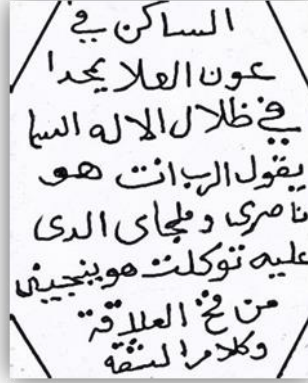 الساكن في
عون العلا يحدا
في ظلال الاله السا
يقول الرب انت هو
ناصرى وملجاى الدى
عليه توكلت هو ينجينى
من فخ العلاقة
وكلام الشقه